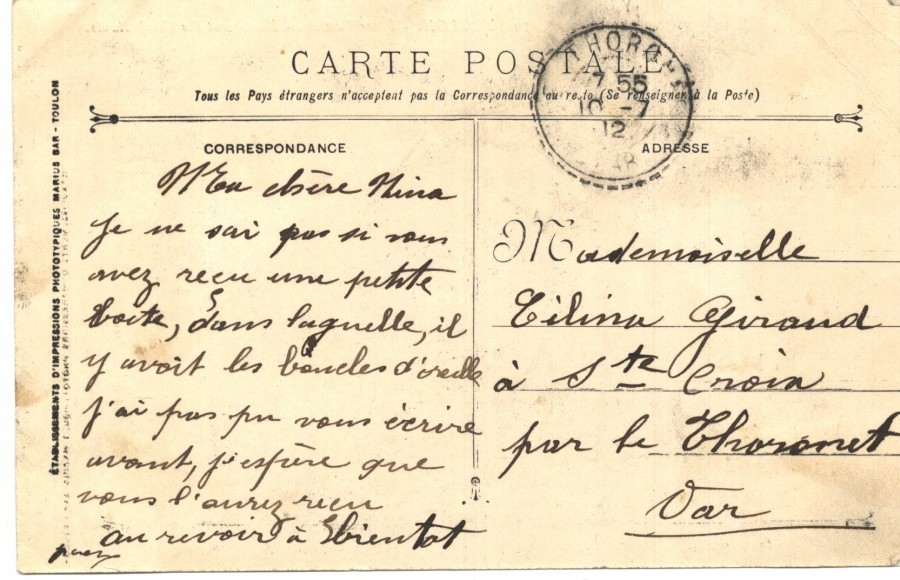 CARTE POSTALE
Tous les Pays étrangers n'acceptent pas la Correspondance au recto (Se renseigner à la Poste)
THORONET
7 55
10 - 7
12
VAR
ÉTABLISSEMENTS D'IMPRESSIONS PHOTOTYPIQUES MARIUS BAR - TOULON
CORRESPONDANCE
Ma chère Nina
Je ne sai pas si vous
avez reçu une petite
boite, dans laquelle, il
y avait les boucles d'oreille
j'ai pas pu vous écrire
avant, j'espère que
vous l'aurez reçu
au revoir à bientot
ADRESSE
Mademoiselle
Giraud
à Ste Croix
par le Thoronet
Var